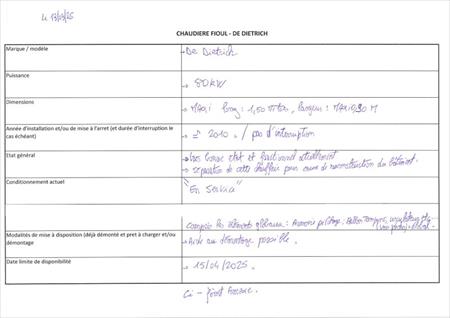 Le 17/03/25
CHAUDIERE FIOUL - DE DIETRICH
Marque / modèle
De Dietrich
Puissance
80 kW
Dimensions
MAXI long : 1,50 Mètres, largeur : MAXI 0,90 M
Année d'installation et/ou de mise à l'arret (et durée d'interruption le
cas échéant)
2010 / pas d'interruption
Etat général
très bonne état et fonctionnel actuellement
séparation de cette chaufferie pour cause de reconstruction du bâtiment.
Conditionnement actuel
"En Service"
compris les éléments
Modalités de mise à disposition (déjà démonté et pret à charger et/ou
démontage
Aide au démontage possible.
Date limite de disponibilité
15/04/2025.